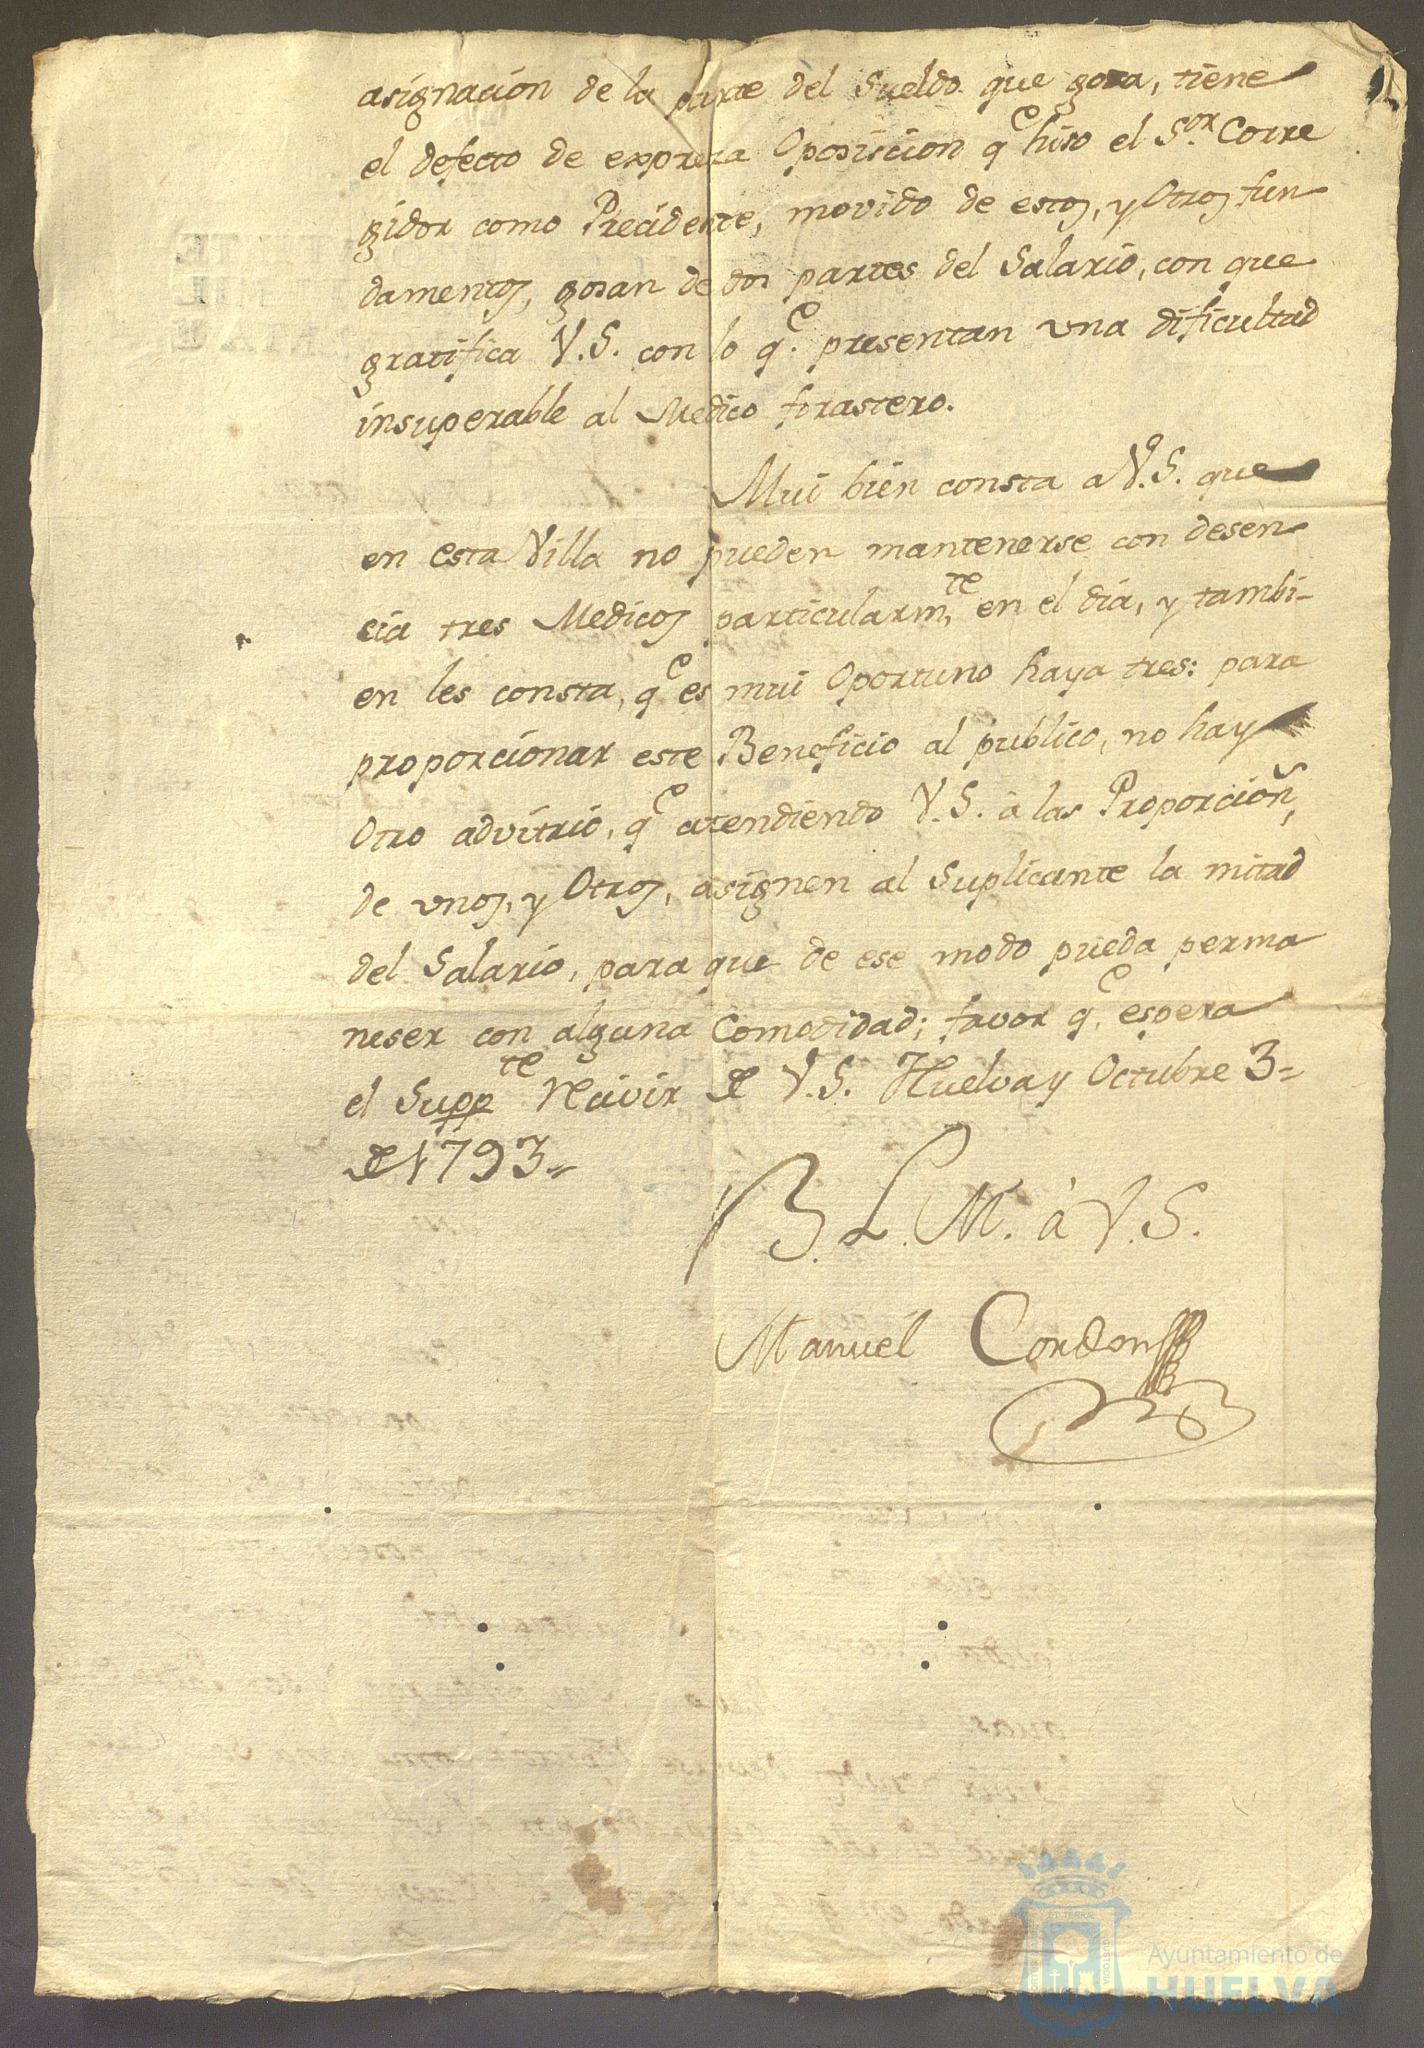 asignacion de la parte del Sueldo que goza, tiene
el defecto de expresa Oposiscion qe hiso el Sor. Corre
gidor como Precidente, movido de estos, y Otros fun
damentos, gozan de dos partes del Salario, con que
gratifica V.S. con lo qe. presentan una dificultad
insuperable al Medico forastero.
Mui bien consta a V.S. que
en esta Villa no pueden mantenerse con desen
cia tres Medicos particularmte. en el dia, y tambi-
en les consta, qe es mui Oportuno haya tres: para
proporcionar este Beneficio al publico, no hay
Otro advitrio, qe atendiendo V.S. à las Proporcions,
de unos, y Otros, asignen al Suplicante la mitad
del Salario, para que de ese modo pueda perma
neser con alguna Comodidad; favor qe. espera
el Suppte Recivir de V.S. Huelva y Octubre 3=
de 1793=
B. L. M. à V.S.
Manuel Cordon
Ayuntamiento de
HUELVA